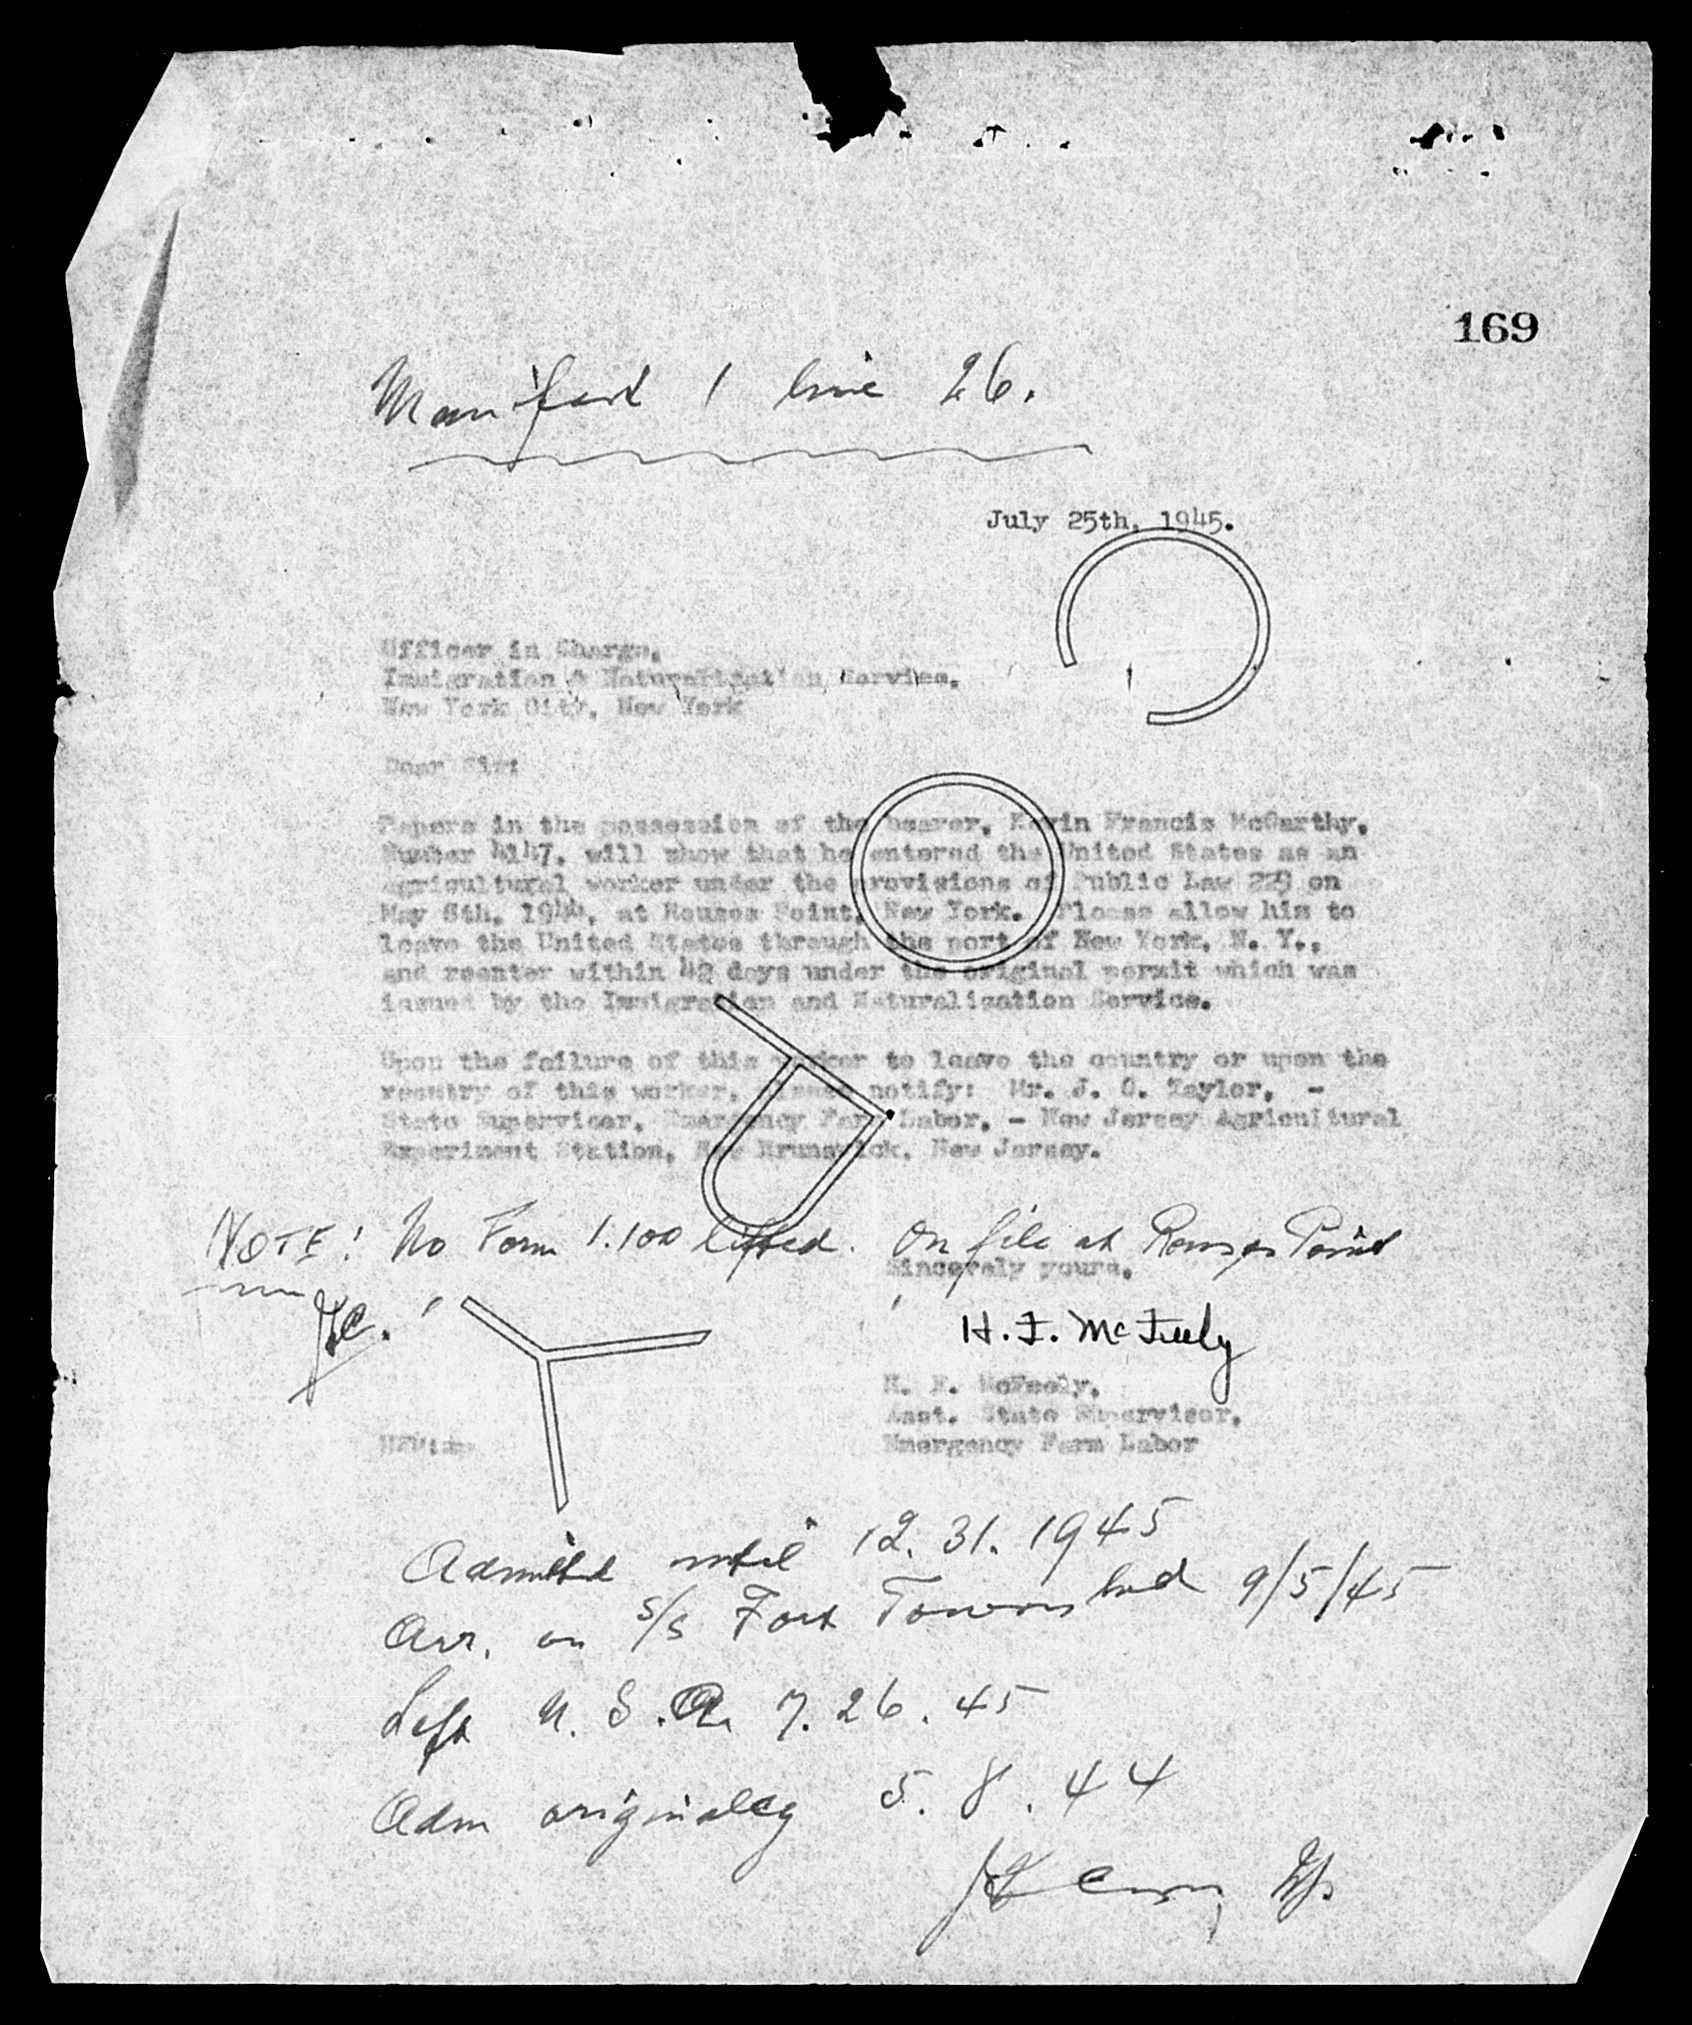 169
Manifest 1 line 26.
July 25th, 1945.
Officer in Charge,
Immigration & Naturalization Service,
New York City, New York
Dear Sir:
Papers in the possession of the bearer, Kevin Francis McCarthy,
Number 4147, will show that he entered the United States as an
agricultural worker under the provisions of Public Law 229 on
May 8th, 1944, at Rouses Point, New York. Please allow him to
leave the United States through the port of New York, N. Y.,
and reenter within 42 days under the original permit which was
issued by the Immigration and Naturalization Service.
Upon the failure of this worker to leave the country or upon the
reentry of this worker, please notify: Mr. J. C. Taylor, -
State Supervisor, Emergency Farm Labor, - New Jersey Agricultural
Experiment Station, New Brunswick, New Jersey.
NOTE! No Form 1.100 lifted. On file at Rouses Point
Sincerely yours,
H. F. McFeely
H. F. McFeely,
Asst. State Supervisor,
Emergency Farm Labor
Admitted until 12.31.1945
Arr. on S/S Fort Townshend 9/5/45
Left U.S.A. 7.26.45
Adm originally 5.8.44